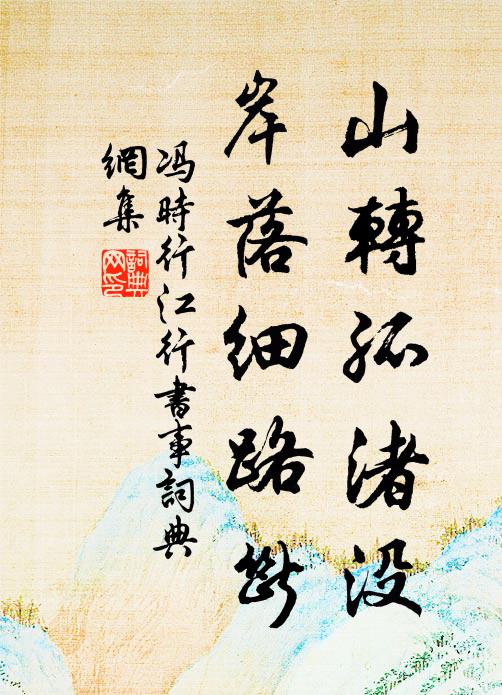 山轉孤渚没
岸落细路斷
冯時行江行書事詞典
網集
詞典
网印